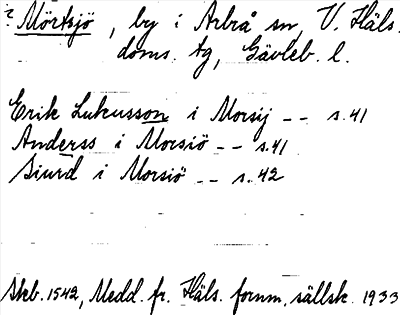 ? Mörtsjö, by i Arbrå sn, V. Häls.
doms. tg, Gävleb. l.
Erik Lukusson i Morsij -- s. 41
Anderss i Morsiö -- s. 41
Siurd i Morsiö -- s. 42
Skb. 1542, Medd. fr. Häls. fornm. sällsk. 1933